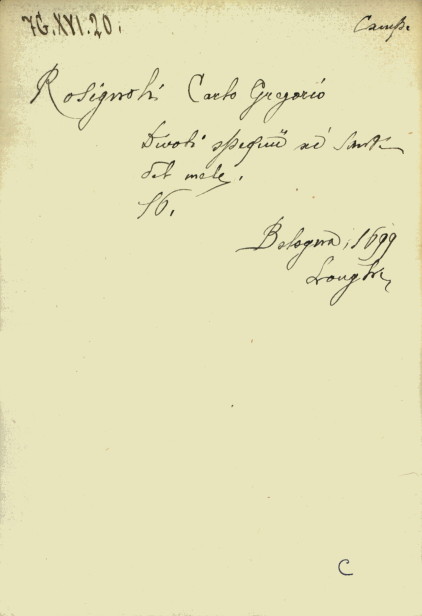 7G.XVI.20.
Rosignoli Carlo Gregorio
Divoti ossequii ai Santi
del mese.
16.
Bologna, 1699
Longhi
C